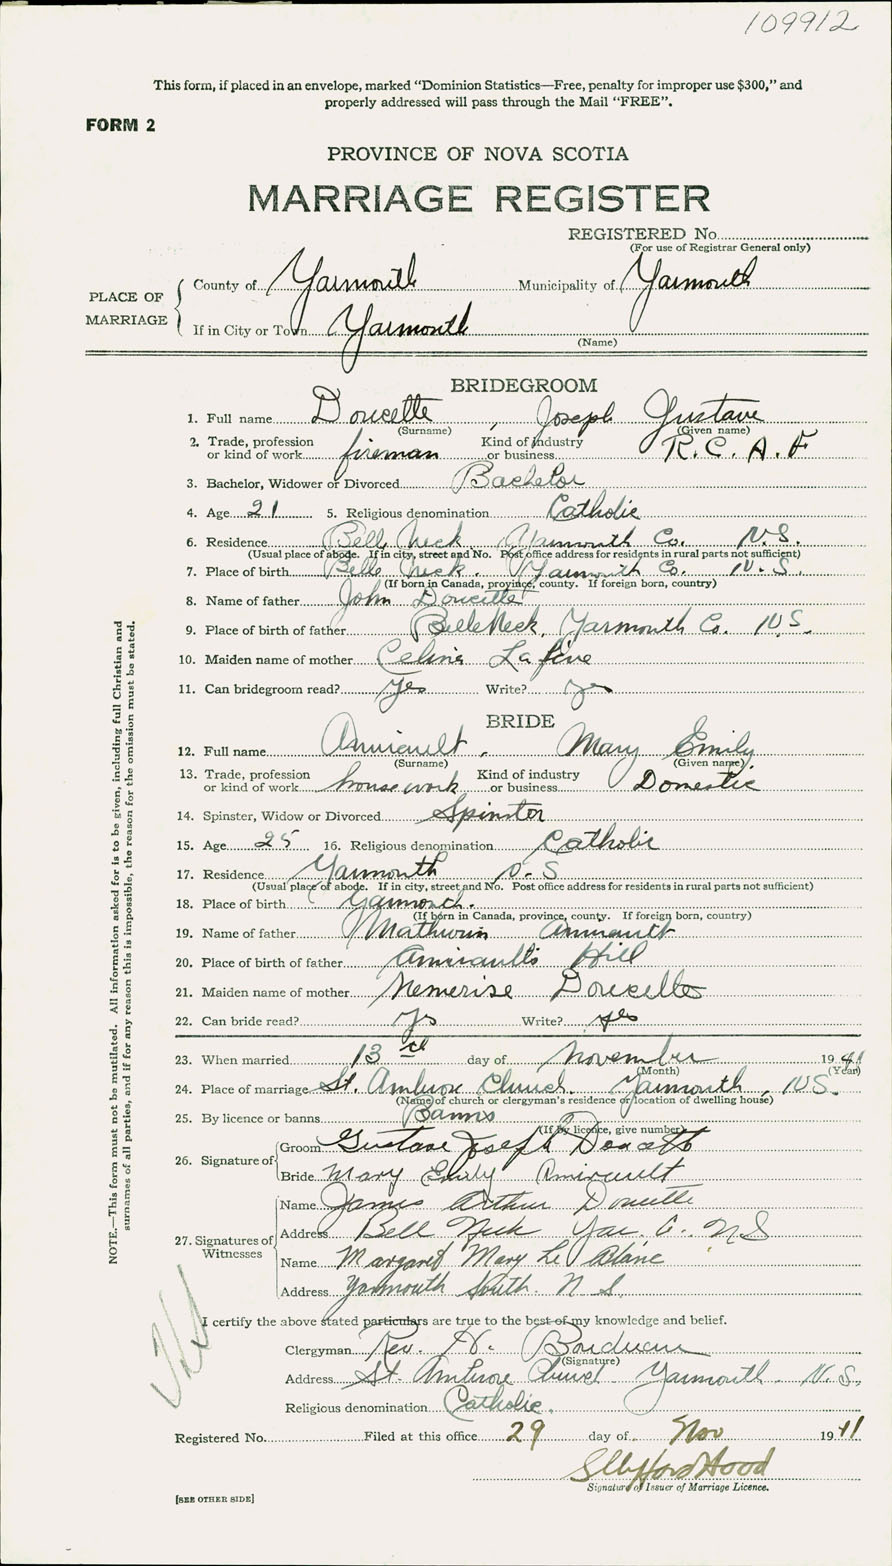 109912
This form, if placed in an envelope, marked “Dominion Statistics—Free, penalty for improper use $300,” and
properly addressed will pass through the Mail “FREE”.
FORM 2
PROVINCE OF NOVA SCOTIA
MARRIAGE REGISTER
REGISTERED No.
(For use of Registrar General only)
PLACE OF MARRIAGE
County of Yarmouth Municipality of Yarmouth
If in City or Town Yarmouth
(Name)
BRIDEGROOM
1. Full name Doucette, Joseph Gustave
(Surname) (Given name)
2. Trade, profession or kind of work fireman Kind of industry or business R.C.A.F
3. Bachelor, Widower or Divorced Bachelor
4. Age 21 5. Religious denomination Catholic
6. Residence Belle Neck Yarmouth Co. N.S.
(Usual place of abode. If in city, street and No. Post office address for residents in rural parts not sufficient)
7. Place of birth Belle Neck. Yarmouth Co. N.S.
(If born in Canada, province, county. If foreign born, country)
8. Name of father John Doucette
9. Place of birth of father Belle Neck, Yarmouth Co. N.S.
10. Maiden name of mother Celina
11. Can bridegroom read? yes Write? yes
BRIDE
12. Full name Amirault, Mary Emily
(Surname) (Given name)
13. Trade, profession or kind of work housework Kind of industry or business Domestic
14. Spinster, Widow or Divorced Spinster
15. Age 25 16. Religious denomination Catholic
17. Residence Yarmouth N.S
(Usual place of abode. If in city, street and No. Post office address for residents in rural parts not sufficient)
18. Place of birth Yarmouth.
(If born in Canada, province, county. If foreign born, country)
19. Name of father Mathurin Amirault
20. Place of birth of father Amirault's Hill
21. Maiden name of mother Nemerise Doucette
22. Can bride read? ys Write? yes
23. When married 13 day of November 1941
(Month) (Year)
24. Place of marriage St. Ambrose Church. Yarmouth, N.S.
(Name of church or clergyman's residence or location of dwelling house)
25. By licence or banns Banns
(If by licence, give number)
26. Signature of
Groom Gustave Joseph Doucette
Bride Mary Emily Amirault
27. Signatures of Witnesses
Name James Arthur Doucette
Address Bell Neck Yar. Co. N S
Name Margaret Mary Le Blanc
Address Yarmouth South. N S.
I certify the above stated particulars are true to the best of my knowledge and belief.
Clergyman Rev. 
(Signature)
Address St. Ambrose Church Yarmouth. N.S.
Religious denomination Catholic.
Registered No. Filed at this office 29 day of Nov 1941
Signature of Issuer of Marriage Licence.
[SEE OTHER SIDE]
NOTE.—This form must not be mutilated. All information asked for is to be given, including full Christian and
surnames of all parties, and if for any reason this is impossible, the reason for the omission must be stated.